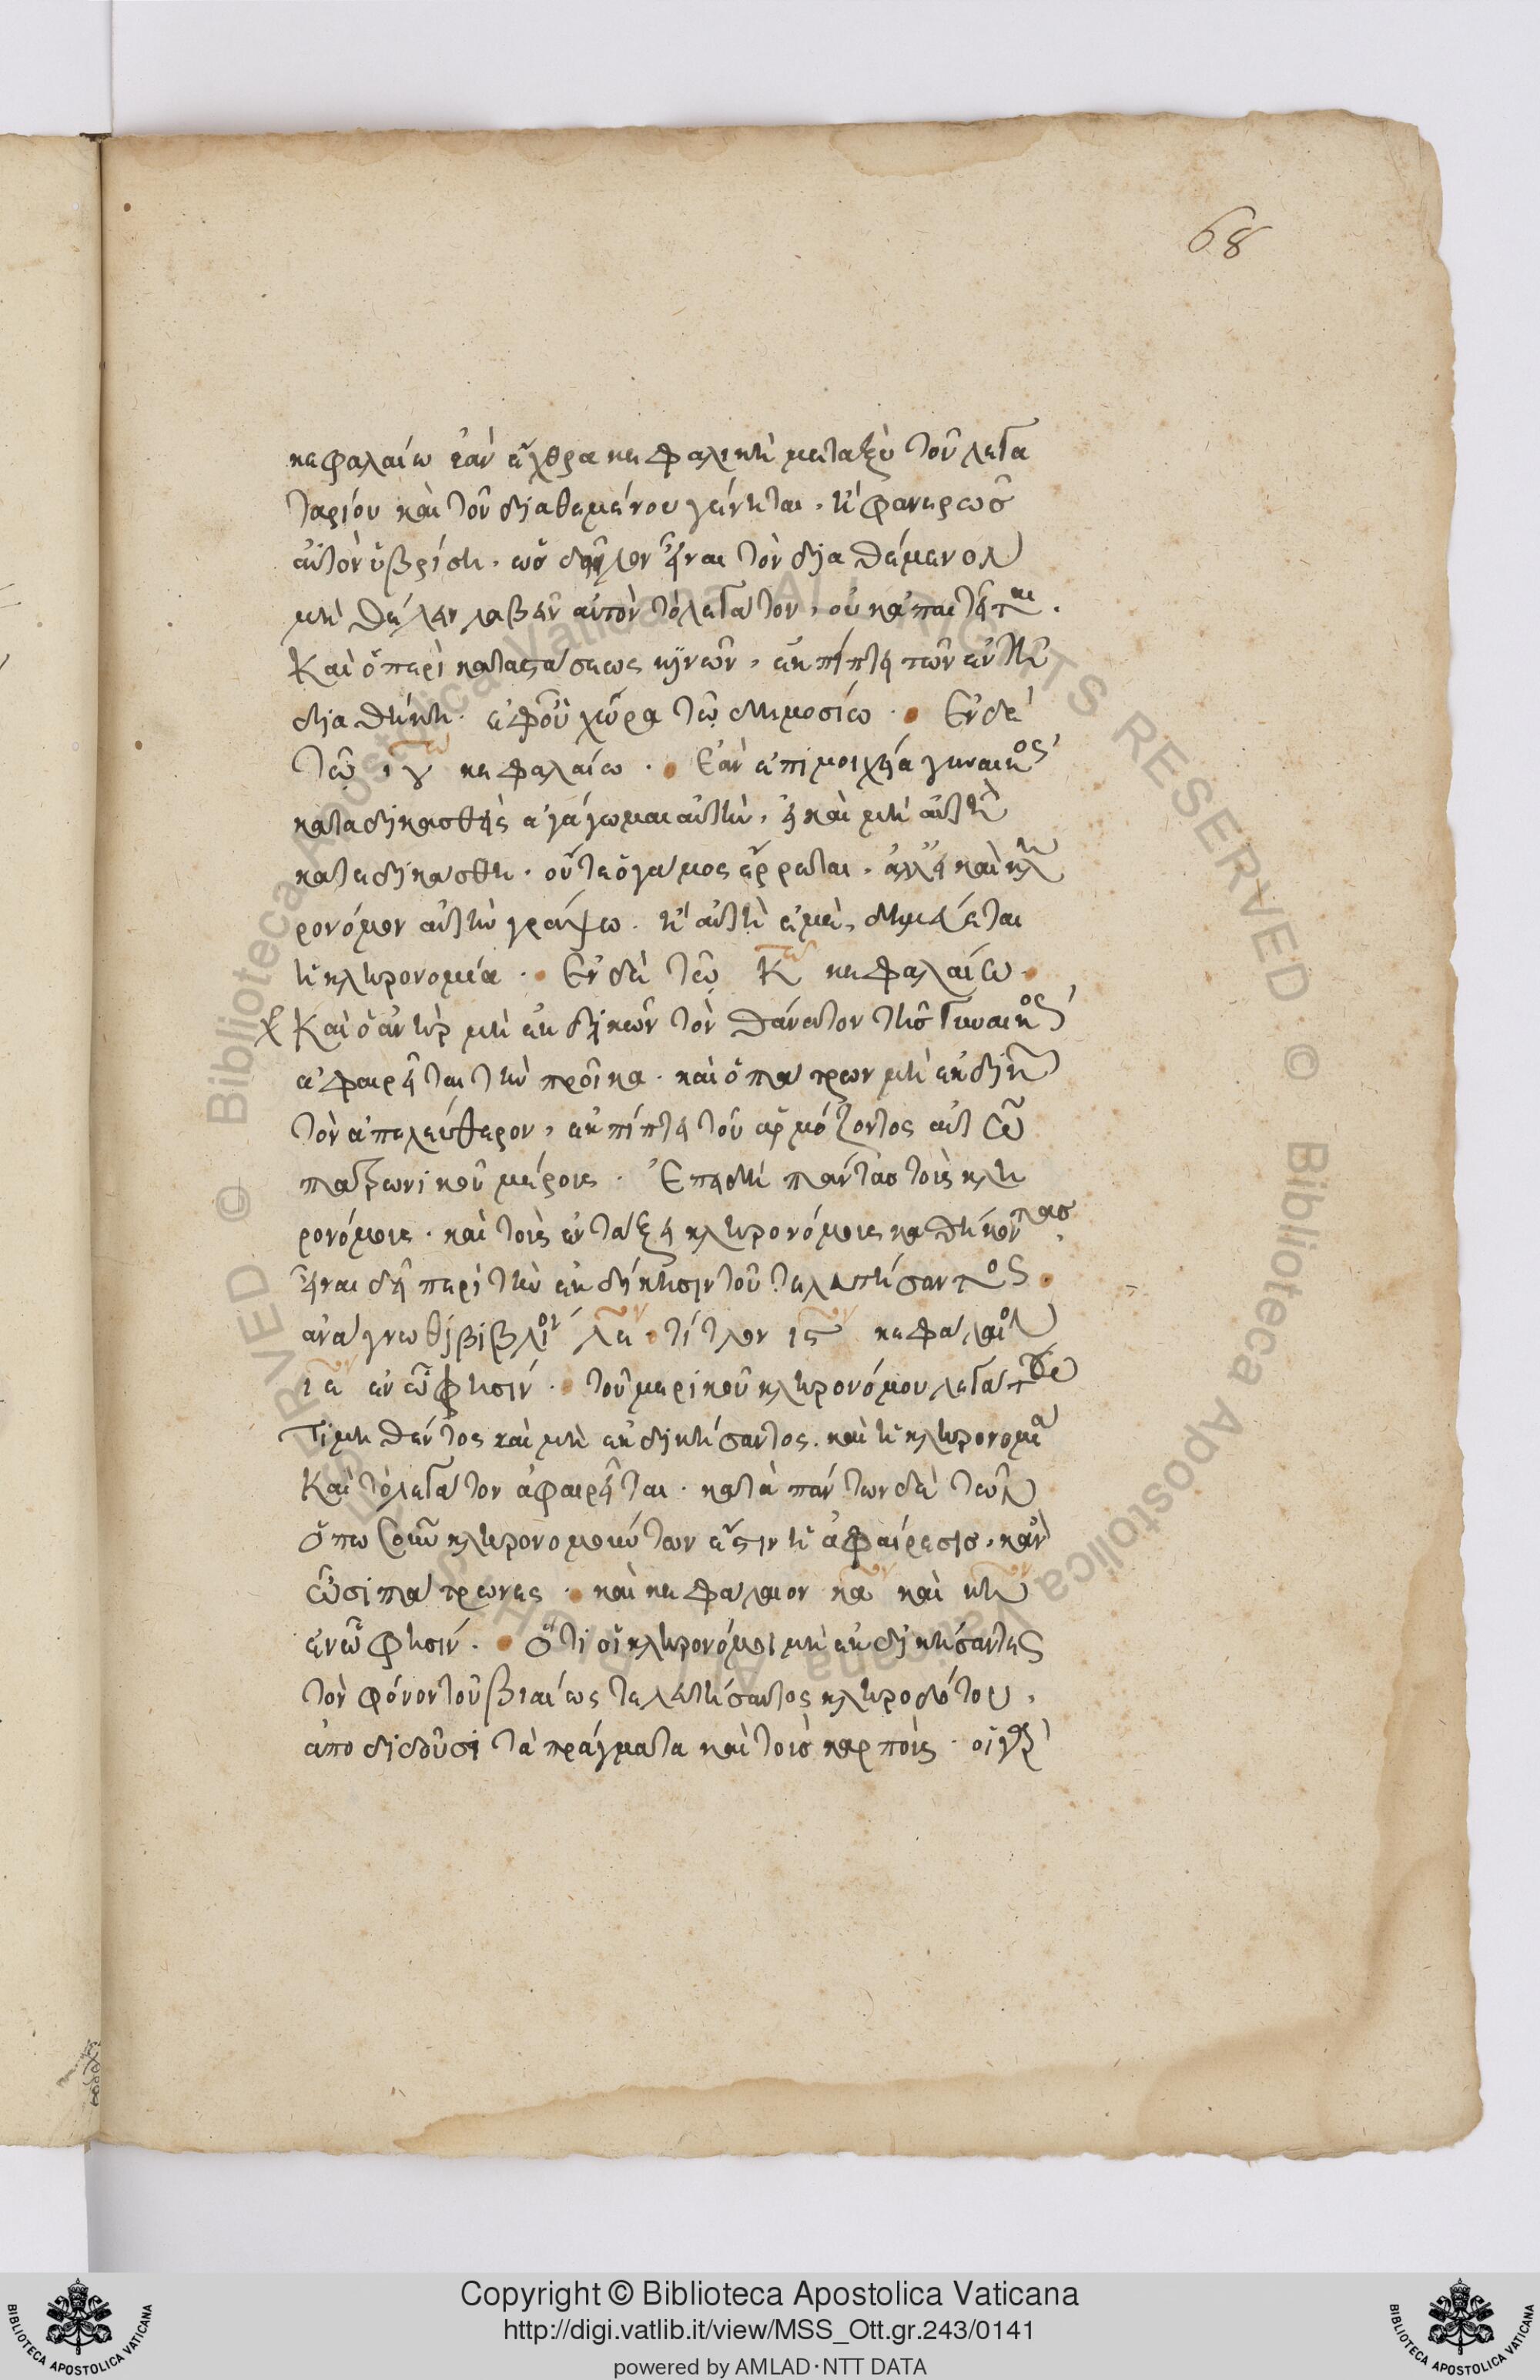 68
κεφαλαίω ἐὰν ἔχθρα κεφαλικὴ μεταξὺ τοῦ λεγα
ταρίου καὶ τοῦ διαθεμένου γένηται, ἢ φανερῶς
αὐτὸν ὑβρίση, ὡς δῆλον εἶναι τὸν διαθέμενον
μὴ θέλειν λαβεῖν αὐτὸν τὸ λεγάτον, οὐκ ἀπαιτεῖται.
Καὶ ὁ περὶ καταστάσεως κινῶν, ἐκπίπτει τῶν ἐν τῆ
διαθήκη. ἐφ οὗ χώρα τῶ δημοσίω. Ἐν δὲ
τῶ ιγτω κεφαλαίω. Ἐὰν ἐπὶ μοιχεία γυναικὸς
καταδικασθεὶς ἀγάγωμαι αὐτὴν, εἰ καὶ μὴ αὐτὴ
κατεδικάσθη. οὔτε ὁ γάμος ἔρρωται. ἀλλ εἰ καὶ κλη
ρονόμον αὐτὴν γράψω. ἢ αὐτὴ ἐμὲ, δημεύεται
ἡ κληρονομία. Ἐν δὲ τῶ κτω κεφαλαίω.
Καὶ ὁ ἀνὴρ μὴ ἐκδικῶν τὸν θάνατον τῆς γυναικὸς
ἀφαιρεῖται τὴν προῖκα. καὶ ὁ πάτρων μὴ ἐκδικῶν
τὸν ἀπελεύθερον, ἐκπίπτει τοῦ ἁρμόζοντος αὐτῶ
πατρωνικοῦ μέρους. Ἐπειδὴ πάντας τοὺς κλη
ρονόμους. καὶ τοὺς ἐν τάξει κληρονόμους καθήκοντας
εἶναι δεῖ περὶ τὴν ἐκδίκησιν τοῦ τελευτήσαντος.
ἀνάγνωθι βιβλίον λε τίτλον ις κεφάλαιον
ιε ἐν ὧ φησίν. τοῦ μερικοῦ κληρονόμου λεγάτω
τιμηθέντος καὶ μὴ ἐκδικήσαντος. καὶ ἡ κληρονομία
Καὶ τὸ λεγάτον ἀφαιρεῖται. κατὰ πάντων δὲ τῶν
ὁπωσοῦν κληρονομούντων ἔστιν ἡ ἀφαίρεσις, κἂν
ὦσι πάτρωνες. καὶ κεφάλαιον κα καὶ κη
ἐν ὧ φησίν. Ὅτι οἱ κληρονόμοι μὴ ἐκδικήσαντες
τὸν φόνον τοῦ βιαίως τελευτήσαντος κληροδότου,
ἀποδιδοῦσι τὰ πράγματα καὶ τοὺς καρπούς. οἱ γὰρ
Copyright © Biblioteca Apostolica Vaticana
http://digi.vatlib.it/view/MSS_Ott.gr.243/0141
powered by AMLAD·NTT DATA